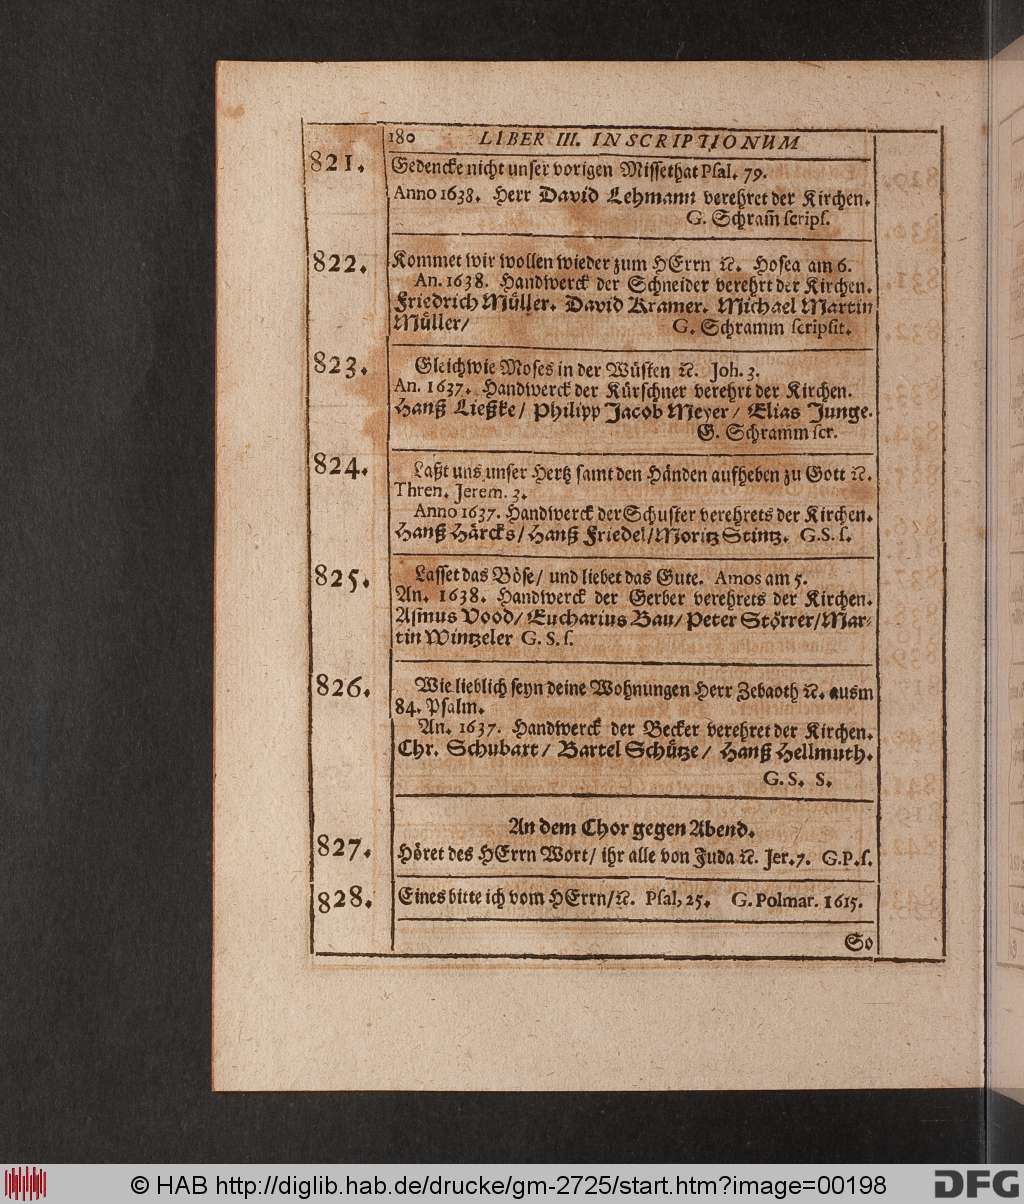 180 LIBER III. INSCRIPTIONUM
821. Gedencke nicht unser vorigen Missethat Psal. 79.
Anno 1638. Herr David Lehmann verehret der Kirchen.
G. Schram̃ scrips.
822. Kommet wir wollen wieder zum HErrn ꝛc. Hosea am 6.
An. 1638. Handwerck der Schneider verehrt der Kirchen.
Friedrich Můller. David Kramer. Michael Martin
Můller/ G. Schramm scripsit.
823. Gleichwie Moses in der Wůsten ꝛc. Joh. 3.
An. 1637. Handwerck der Kůrschner verehrt der Kirchen.
Hanß Ließke/ Philipp Jacob Meyer/ Elias Junge.
G. Schramm scr.
824. Laßt uns unser Hertz samt den Hånden aufheben zu Gott ꝛc.
Thren. Jerem. 3.
Anno 1637. Handwerck der Schuster verehrets der Kirchen.
Hanß Hårcks/ Hanß Friedel/ Moritz Stintz. G.S. s.
825. Lasset das Bőse/ und liebet das Gute. Amos am 5.
An. 1638. Handwerck der Gerber verehrets der Kirchen.
Asmus Vood/ Eucharius Bau/ Peter Stőrrer/ Mar-
tin Wintzeler G. S. s.
826. Wie lieblich seyn deine Wohnungen Herr Zebaoth ꝛc. ausm
84. Psalm.
An. 1637. Handwerck der Becker verehret der Kirchen.
Chr. Schubart/ Bartel Schůtze/ Hanß Hellmuth.
G. S. S.
An dem Chor gegen Abend.
827. Hőret des HErrn Wort/ ihr alle von Juda ꝛc. Jer. 7. G.P. s.
828. Eines bitte ich vom HErrn/ ꝛc. Psal, 25. G. Polmar. 1615.
So
© HAB http://diglib.hab.de/drucke/gm-2725/start.htm?image=00198
DFG